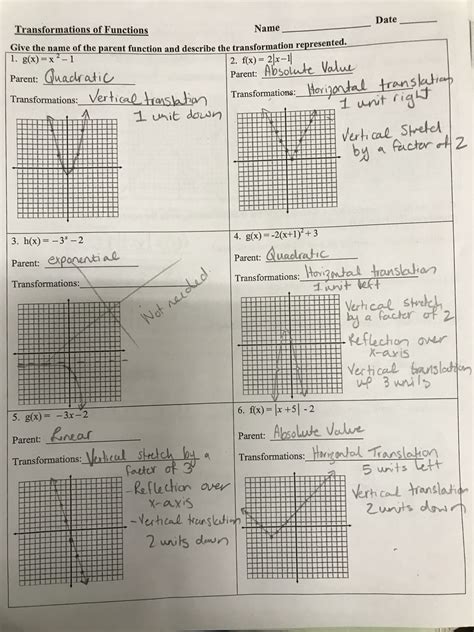 Transformations of Functions
Name
Date
Give the name of the parent function and describe the transformation represented.
1. g(x) = x² − 1
Parent: Quadratic
Transformations: Vertical translation
1 unit down
2. f(x) = 2|x−1|
Parent: Absolute Value
Transformations: Horizontal translation
1 unit right
Vertical Stretch
by a factor of 2
3. h(x) = −3ˣ − 2
Parent: exponential
Transformations:
Not needed
4. g(x) = -2(x+1)² + 3
Parent: Quadratic
Transformations: Horizontal translation
1 unit left
Vertical stretch
by a factor of 2
- Reflection over
x-axis
Vertical translation
up 3 units
5. g(x) = −3x − 2
Parent: Linear
Transformations: Vertical stretch by a
factor of 3
- Reflection over
x-axis
- Vertical translation
2 units down
6. f(x) = |x +5| - 2
Parent: Absolute Value
Transformations: Horizontal Translation
5 units left
Vertical translation
2 units down